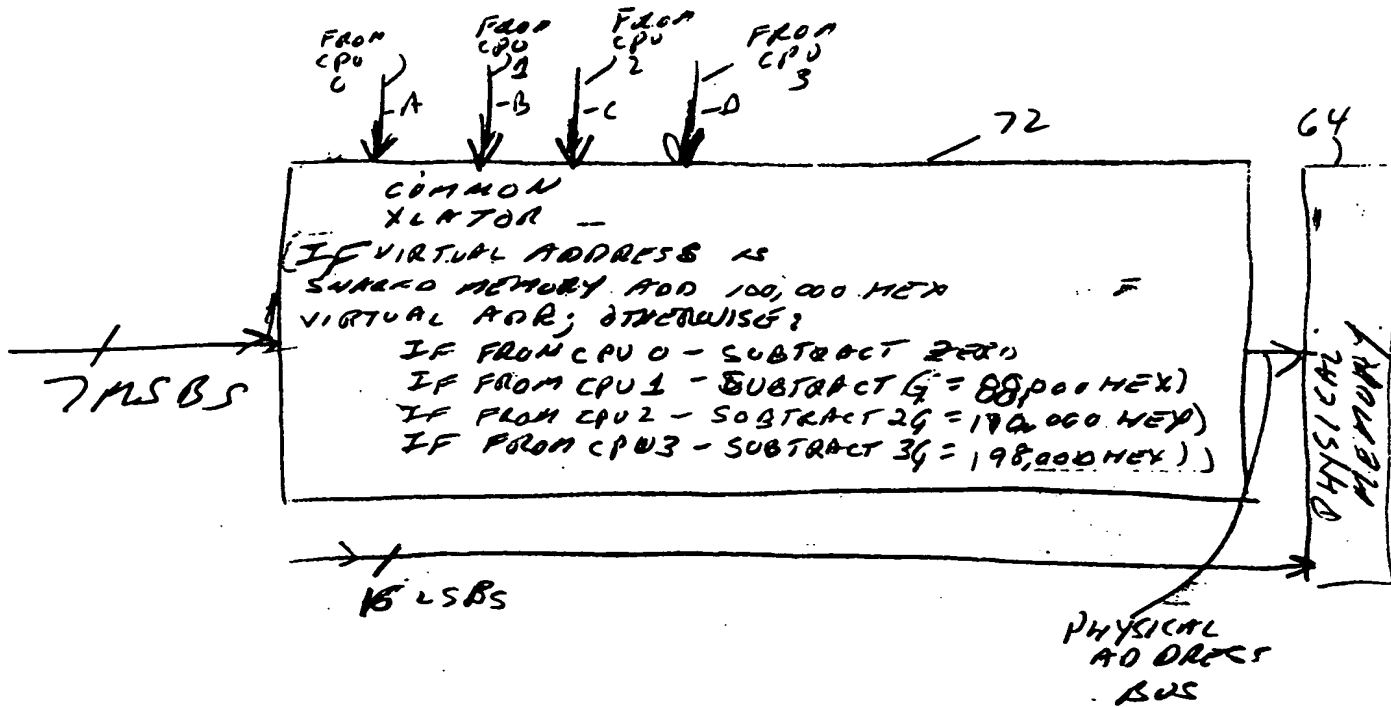 FROM
CPU
0
FROM
CPU
1
FROM
CPU
2
FROM
CPU
3
A
B
C
D
72
64
COMMON
XLATOR —
(IF VIRTUAL ADDRESS IS
SHARED MEMORY ADD 100,000 HEX =
VIRTUAL ADR; OTHERWISE:
IF FROM CPU 0 - SUBTRACT ZERO
IF FROM CPU 1 - SUBTRACT G = 88,000 HEX)
IF FROM CPU2 - SUBTRACT 2G = HEX)
IF FROM CPU3 - SUBTRACT 3G = 198,000 HEX))
7 MSBS
LSBS
PHYSICAL
MEMORY
PHYSICAL
ADDRESS
BUS